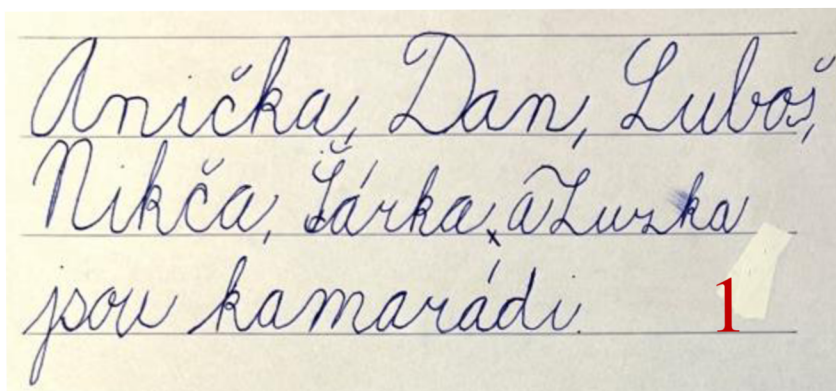 Anička, Dan, Luboš,
Nikča, Šárka, a Zuzka
jsou kamarádi.
1